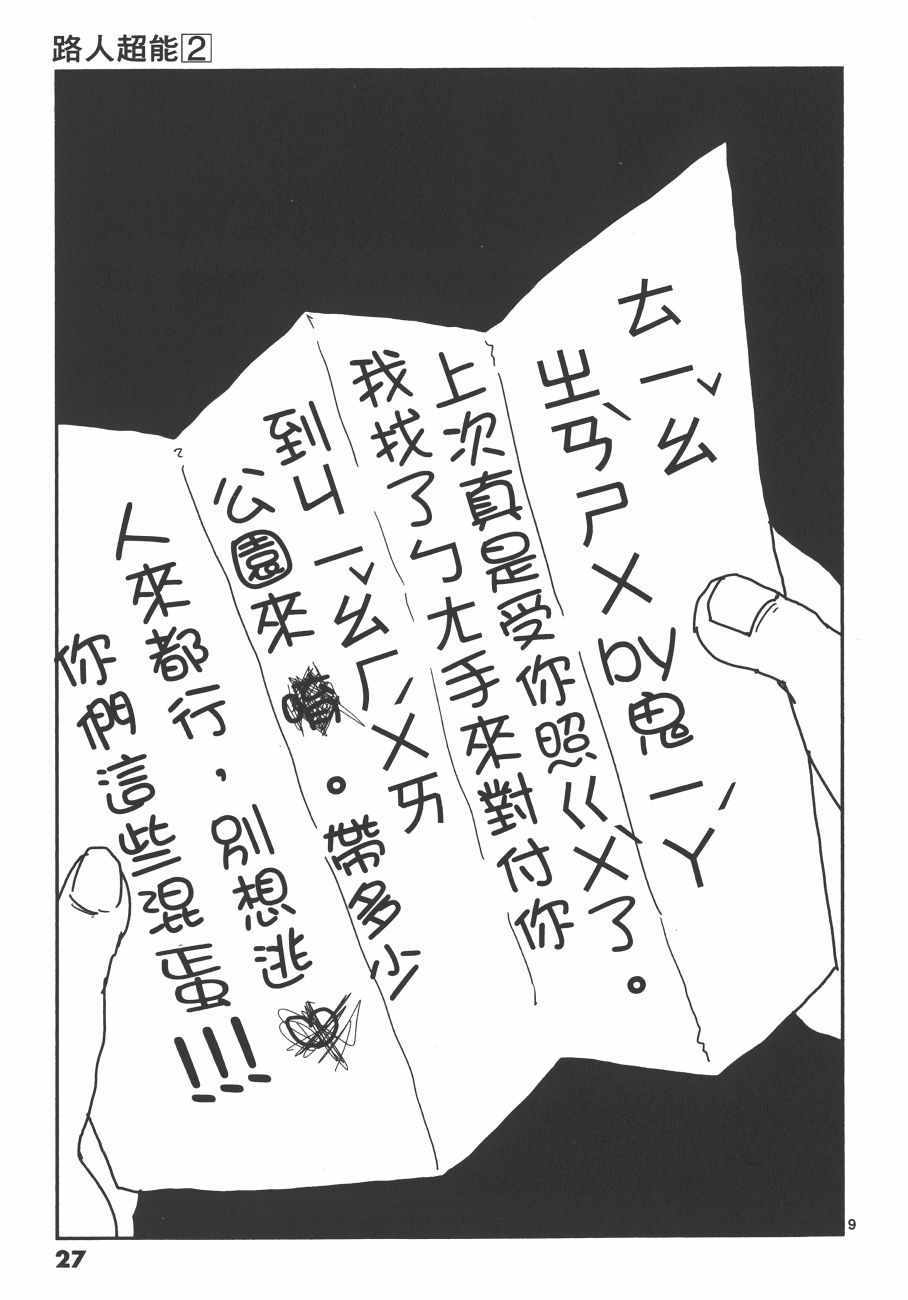 路人超能2
ㄊㄧㄠˇ
ㄓㄢˋㄕㄨ by鬼ㄧㄚˊ
上次真是受你照ㄍㄨˋ了。
我找了ㄅㄤ手來對付你
到ㄐㄧㄠˇㄏㄨㄞˊ
公園來。帶多少
人來都行，別想逃♡
你們這些混蛋!!!
9
27